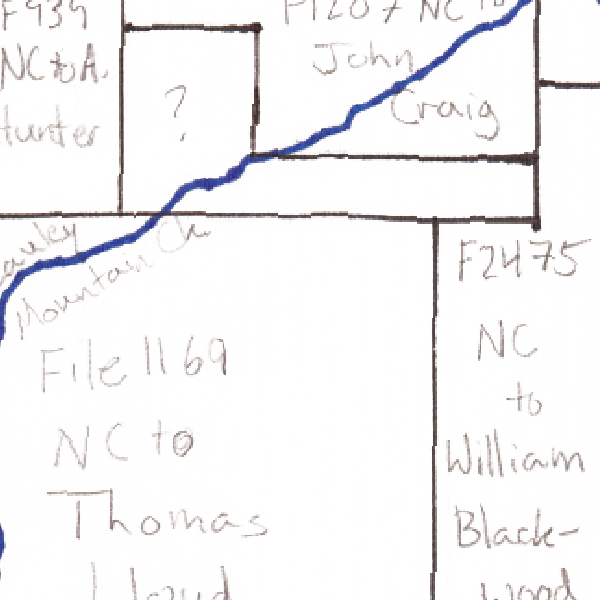 F939
NC to A.
Hunter
?
F1207 NC to
John
Craig
Mountain Ck
File 1169
NC to
Thomas
Lloyd
F2475
NC
to
William
Black-
wood